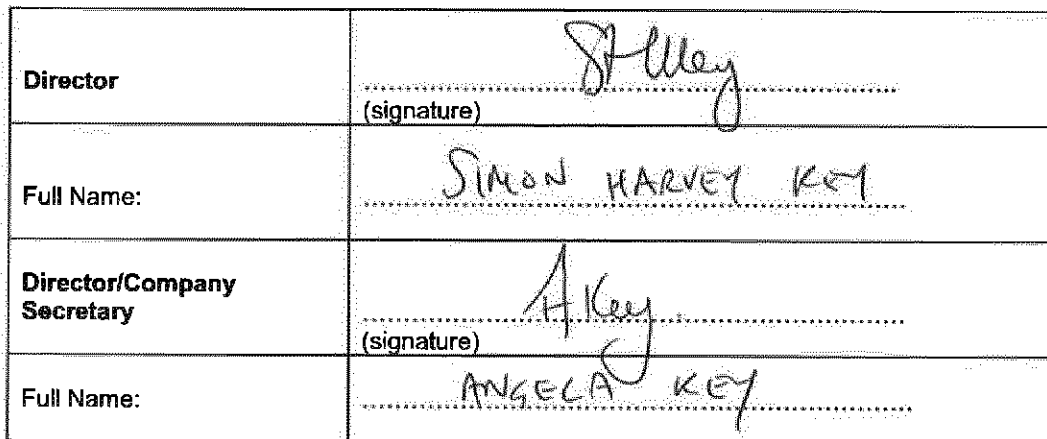 Director
SHKey
(signature)
Full Name:
SIMON HARVEY KEY
Director/Company
Secretary
AKey
(signature)
Full Name:
ANGELA KEY